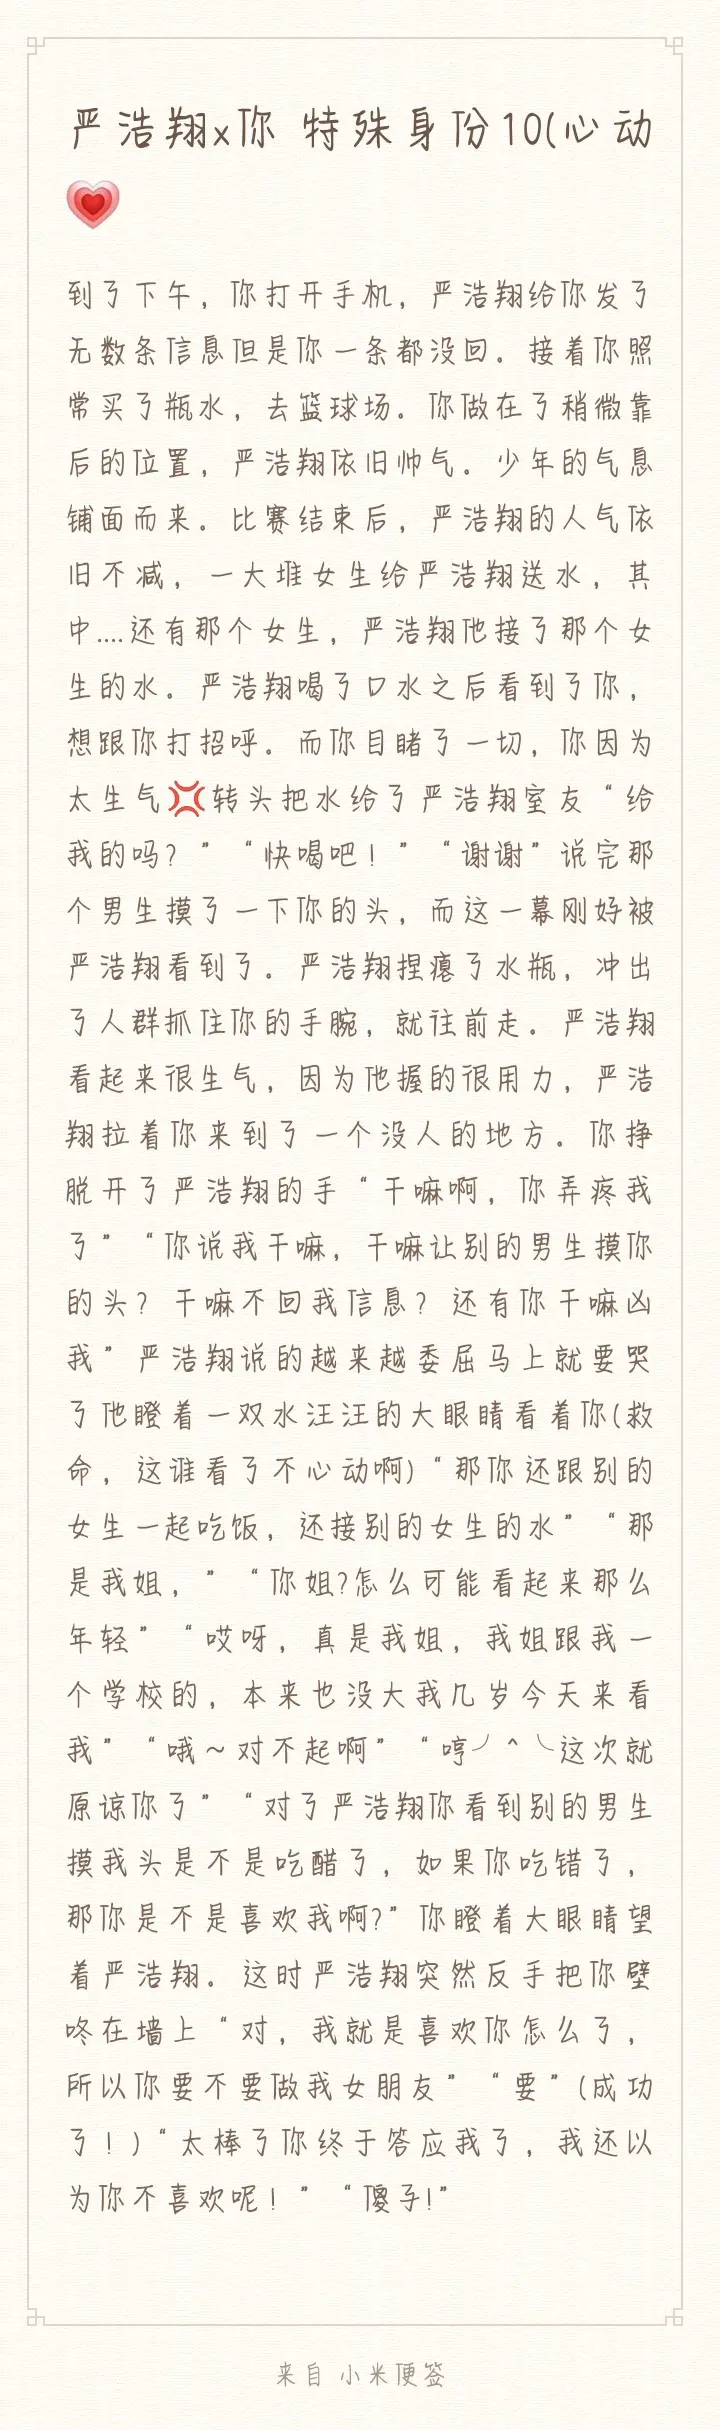 严浩翔x你 特殊身份10(心动
💗
到了下午，你打开手机，严浩翔给你发了
无数条信息但是你一条都没回。接着你照
常买了瓶水，去篮球场。你做在了稍微靠
后的位置，严浩翔依旧帅气。少年的气息
铺面而来。比赛结束后，严浩翔的人气依
旧不减，一大堆女生给严浩翔送水，其
中....还有那个女生，严浩翔他接了那个女
生的水。严浩翔喝了口水之后看到了你，
想跟你打招呼。而你目睹了一切，你因为
太生气💢转头把水给了严浩翔室友“给
我的吗？”“快喝吧！”“谢谢”说完那
个男生摸了一下你的头，而这一幕刚好被
严浩翔看到了。严浩翔捏瘪了水瓶，冲出
了人群抓住你的手腕，就往前走。严浩翔
看起来很生气，因为他握的很用力，严浩
翔拉着你来到了一个没人的地方。你挣
脱开了严浩翔的手“干嘛啊，你弄疼我
了”“你说我干嘛，干嘛让别的男生摸你
的头？干嘛不回我信息？还有你干嘛凶
我”严浩翔说的越来越委屈马上就要哭
了他瞪着一双水汪汪的大眼睛看着你(救
命，这谁看了不心动啊)“那你还跟别的
女生一起吃饭，还接别的女生的水”“那
是我姐，”“你姐?怎么可能看起来那么
年轻”“哎呀，真是我姐，我姐跟我一
个学校的，本来也没大我几岁今天来看
我”“哦～对不起啊”“哼╯^╰这次就
原谅你了”“对了严浩翔你看到别的男生
摸我头是不是吃醋了，如果你吃错了，
那你是不是喜欢我啊?”你瞪着大眼睛望
着严浩翔。这时严浩翔突然反手把你壁
咚在墙上“对，我就是喜欢你怎么了，
所以你要不要做我女朋友”“要”(成功
了！)“太棒了你终于答应我了，我还以
为你不喜欢呢！”“傻子!”
来自 小米便签